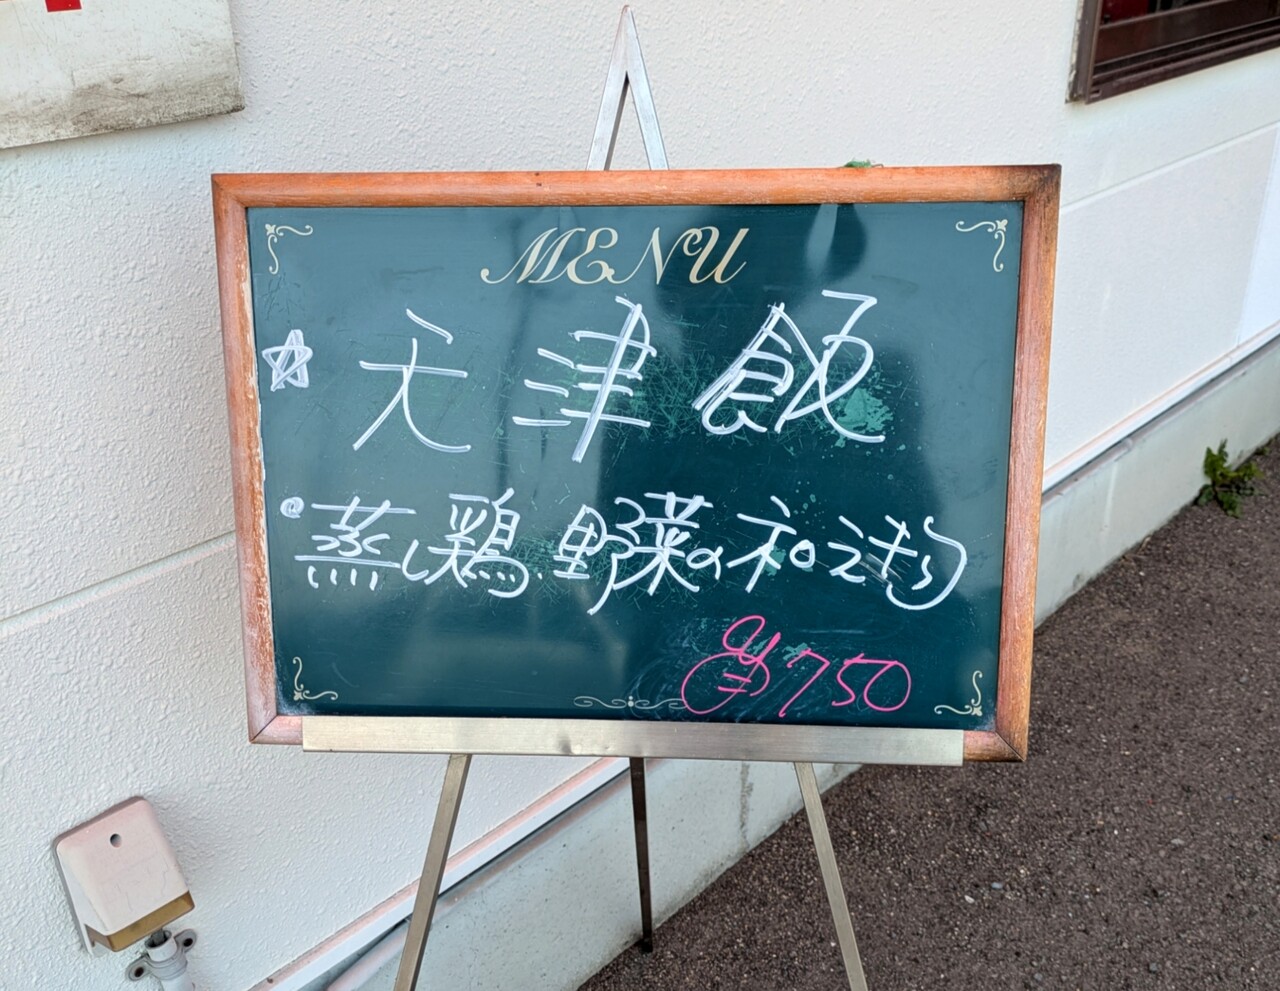 MENU
☆ 天津飯
・蒸し鶏、野菜の和え物
¥750